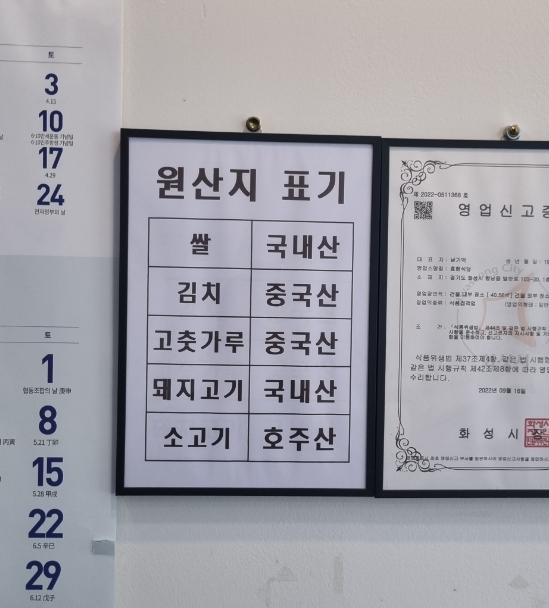 토
3
4.13
10
17
4.29
24
토
1
8
5.21 丁卯
15
5.28 甲戌
22
6.5 辛巳
29
6.12 戊子
원산지 표기
쌀 국내산
김치 중국산
고춧가루 중국산
돼지고기 국내산
소고기 호주산
제 2022-0511368 호
영업신고증
대 표 자 :
영업소명칭 :
소 재 지 : 경기도 화성시
영업의종류 : 식품접객업
조 건 :
식품위생법 제37조제4항, 같은 법 시행령
같은 법 시행규칙 제42조제8항에 따라 영업
수리합니다.
2022년 09월 16일
화 성 시 장